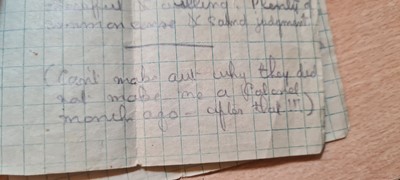 & willing. Plenty of
common sense & sound judgment
(Can't make out why they did
not make me a
month ago - after that!!!)